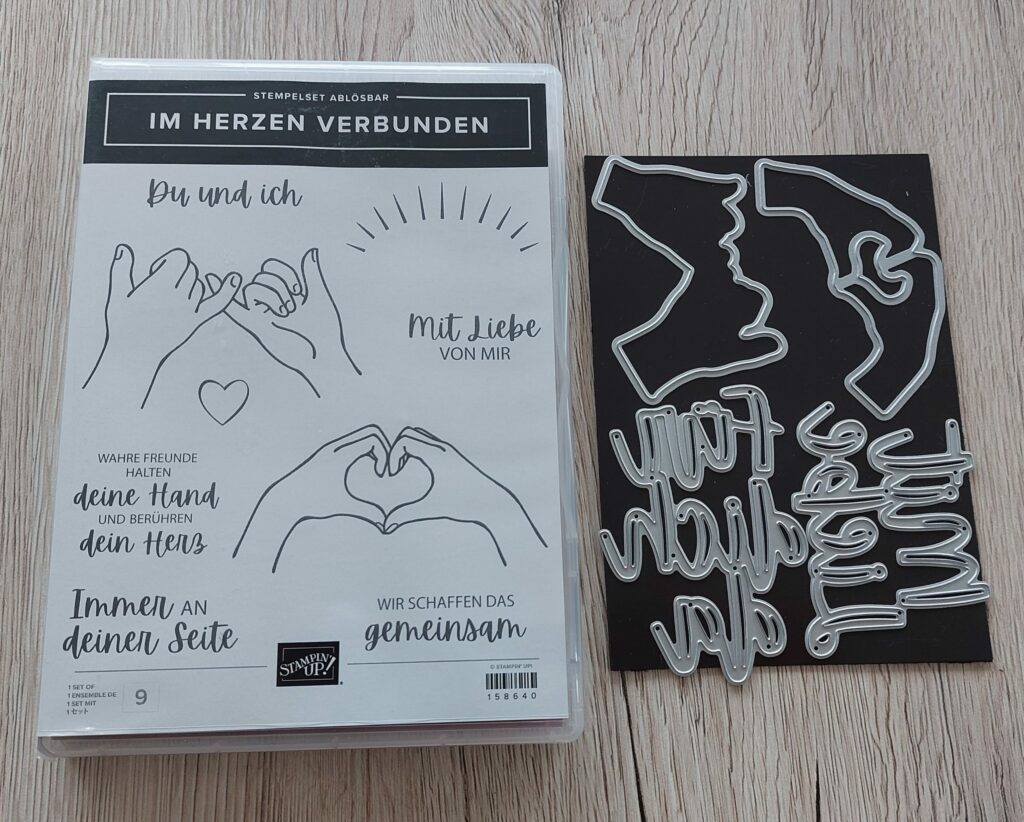 STEMPELSET ABLÖSBAR
IM HERZEN VERBUNDEN
Du und ich
Mit Liebe
VON MIR
WAHRE FREUNDE
HALTEN
deine Hand
UND BERÜHREN
dein Herz
Immer AN
deiner Seite
WIR SCHAFFEN DAS
gemeinsam
STAMPIN'
UP!
© STAMPIN' UP!
158640
1 SET OF
1 ENSEMBLE DE
1 SET MIT
1セット
9